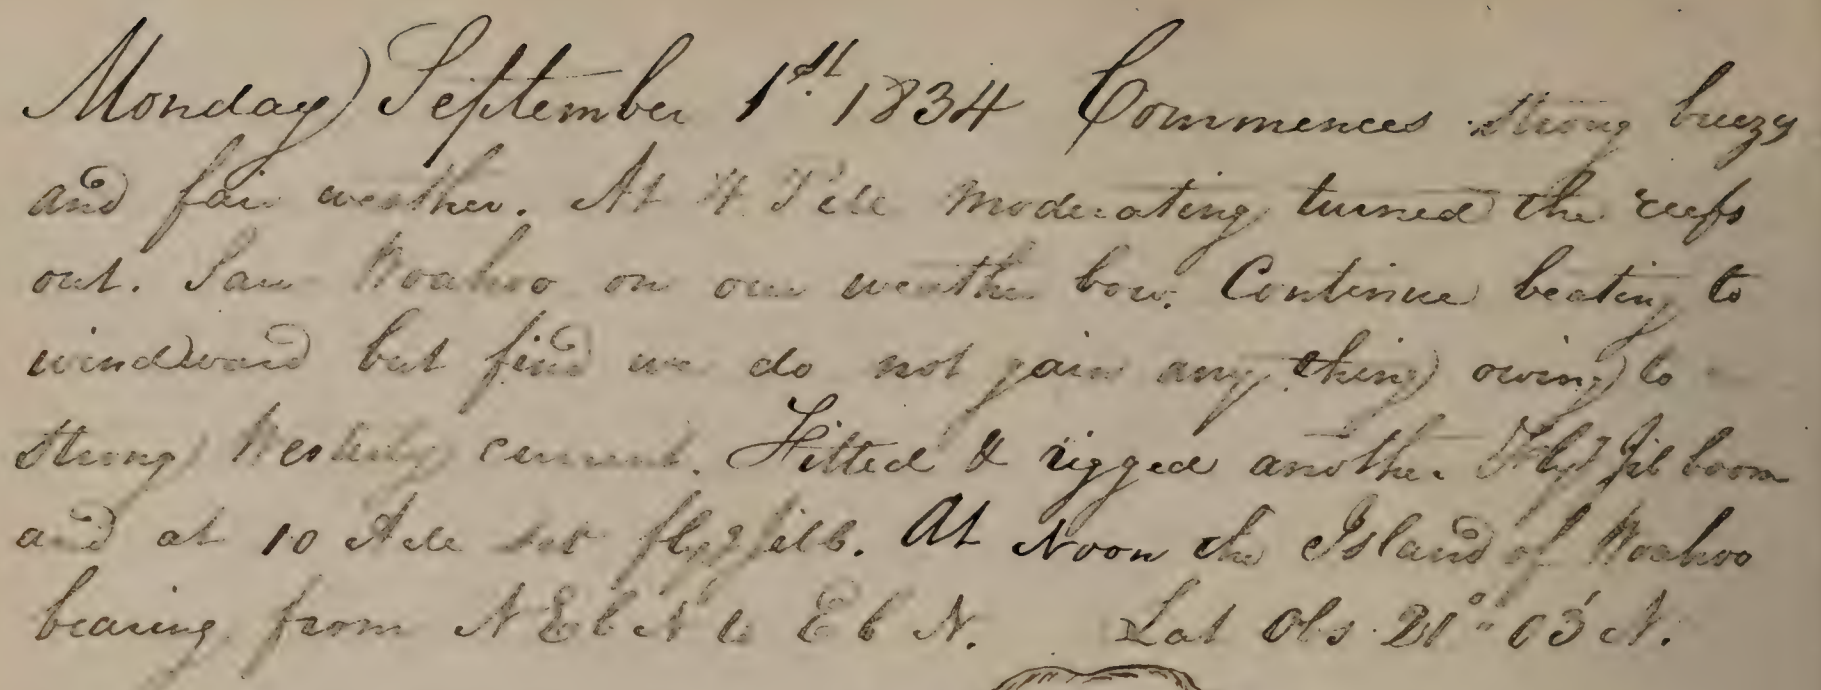 Monday September 1st 1834 Commences strong breezy
and fair weather. At 4 P.M moderating turned the reefs
out. Saw Woahoo on our weather bow. Continue beating to
windward but find we do not gain any thing owing to
strong Westerly current. Fitted & rigged another Flyg Jib boom
and at 10 A.M set flyg jib. At Noon the Island of Woahoo
bearing from N E b N to E b N. Lat Obs 21° " 03' N.